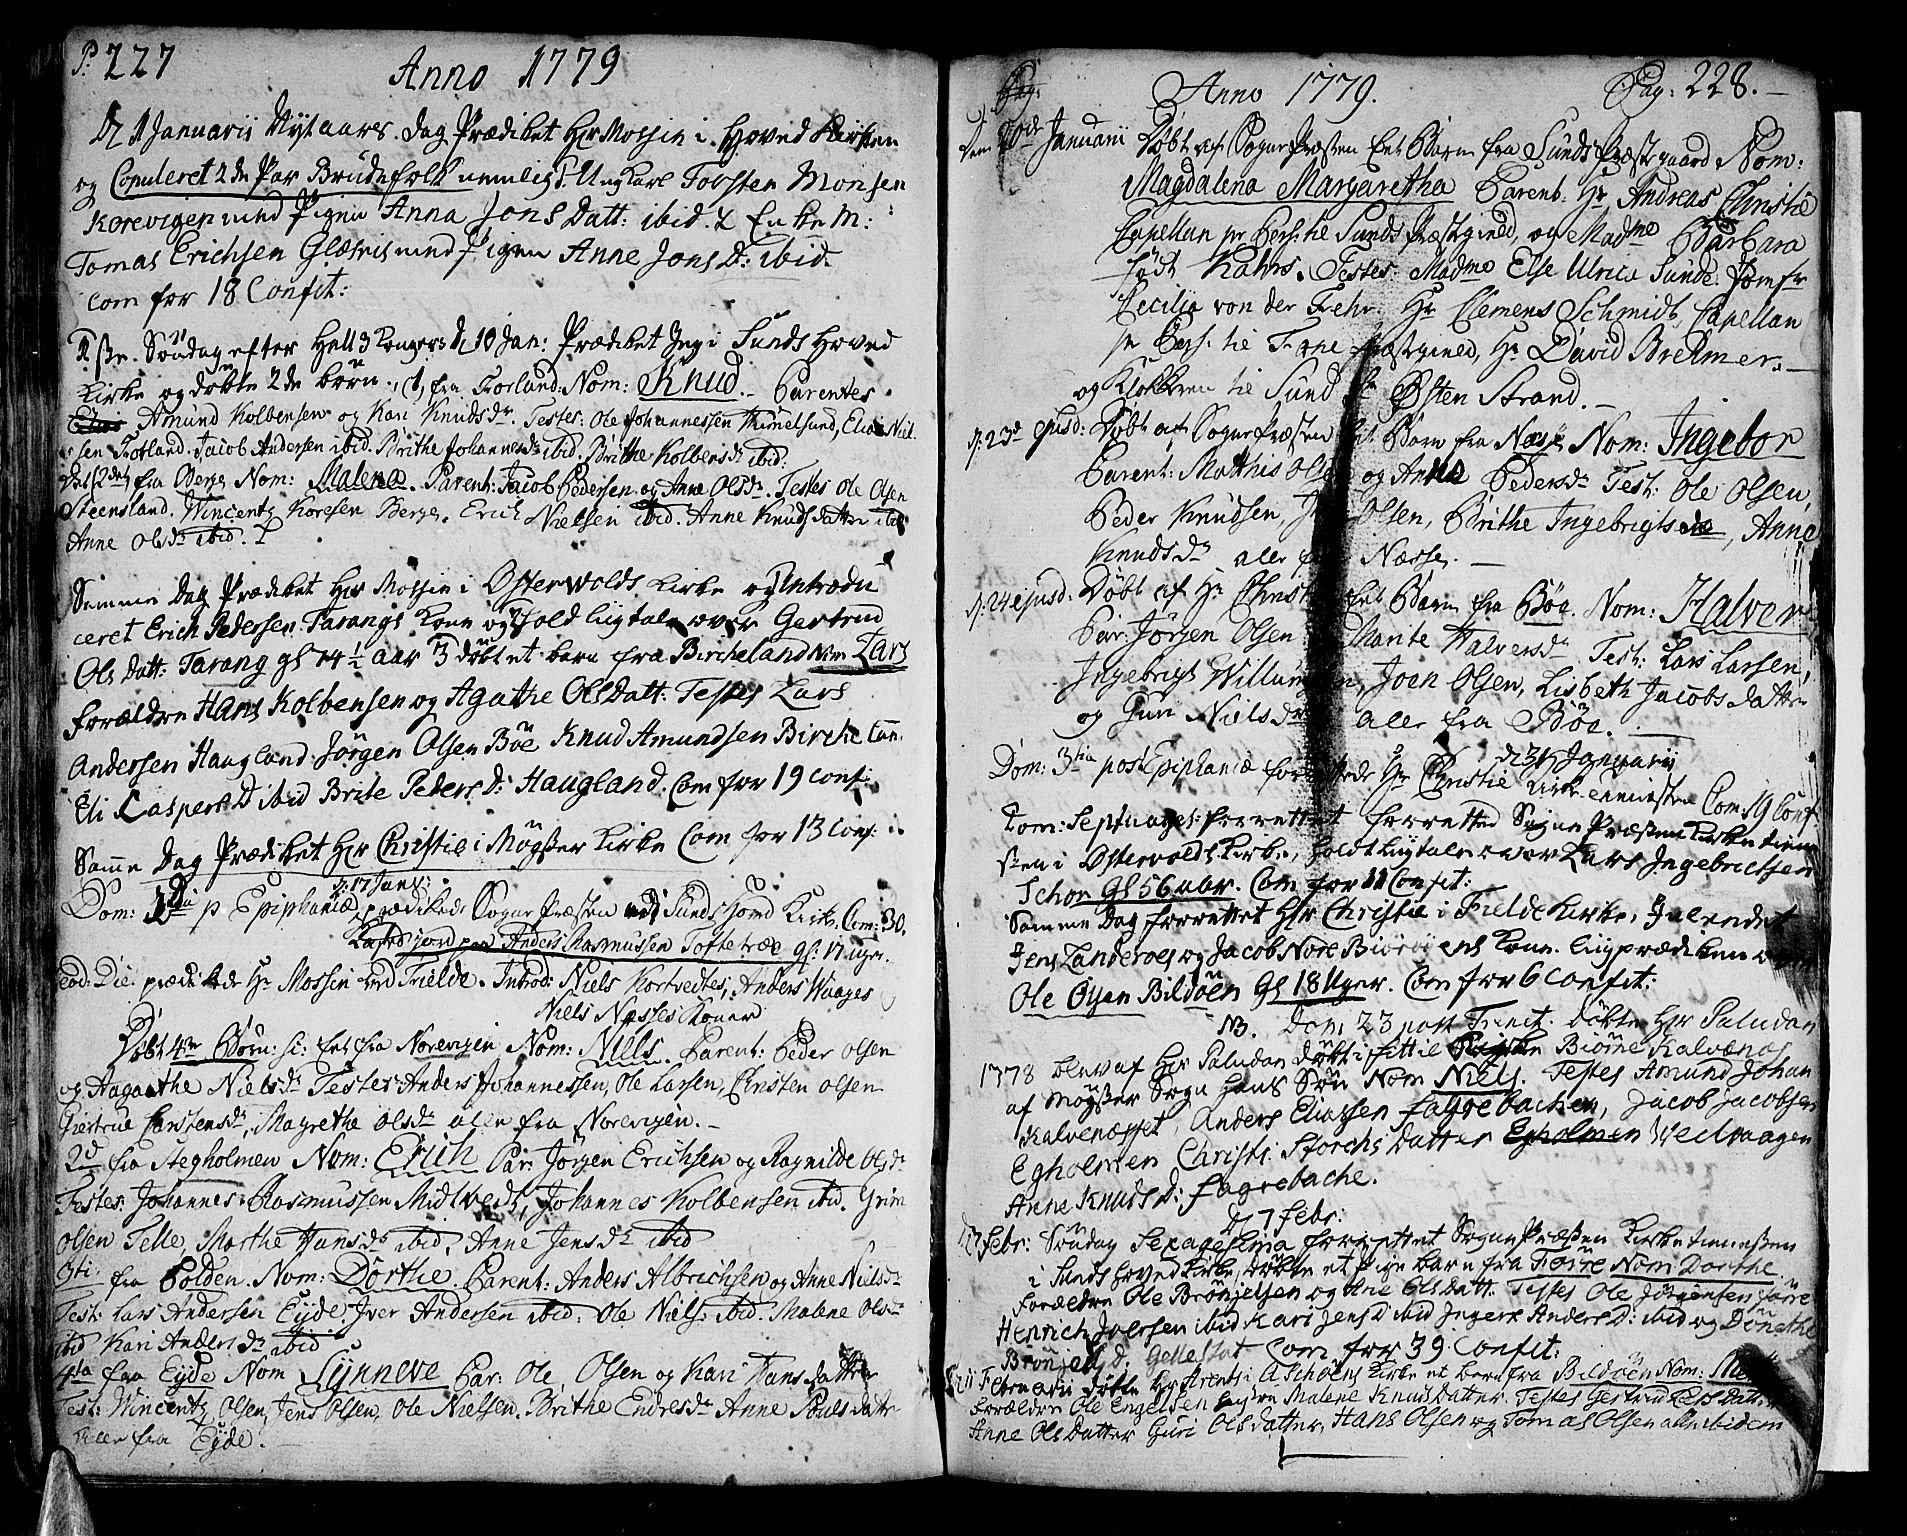 P: 227
Anno 1779
D 1 Januarii Nÿtaars. Dag Prædiket Hr Mossin i Hoved Kirken
og Copuleret 2de Par Brüdefolk nemlig Ungkarl Torsten Monsen
Korevigen med Pigen Anna Jons Datt: ibid. & Enke M:
Tomas Erichsen Glæsvis med Pigen Anne Jons D: ibid.
Com for 18 Confit:
Söndag efter Hell 3 Konger D 10 Jan: Prædiket Jeg i Sunds Hoved
Kirke og döbte 2de börn. fra Forland: Nom: Knud. Parentes
Amund Kolbensen og Kari Knudsdr. Testes: Ole Johannessen Himelsund, Elias Niel
sen Forland. Jacob Andersen ibid. Brithe Johannesdr ibid. Brithe Kolbensdr ibid:
Det 2det fra Berge Nom: Malena. Parent: Jacob Pedersen og Anne Olsdr. Testes Ole Olsen
Steensland. Wincentz Koresen Berge. Erich Nielsen ibid. Anne Knudsdatter ibid
Anne Olsdr ibid.
Samme Dag Prædiket Hr Mossin i Østerwolds Kirke og Introdu
ceret Erich Pedersen Tarangs Kone og holdt liigtale over Gertrud
Ols Datt: Tarang gl 74 1/2 aar döbt et barn fra Bircheland Nom Lars
forældre Hans Kolbensen og Agathe Ols Datt: Testes Lars
Andersen Haugland Jörgen Olsen Böe Knud Amundsen Bircheland.
Eli Caspers D ibid Brite Peders D: Haugland. Com for 19 conf:
Samme Dag Prædiket Hr Christie i Mögster Kirke Com for 13 Conf:
D: 17 Janv:
Dom: 2da p Epiphaniæ prædikede Sogne Præsten ved Sunds Hoved Kirke. Com: 30.
Kasted jord paa Anders Rasmussen Toftetræe gl: 17 uger.
eod: Die. prædikede Hr Mossin ved Fielde. Introd: Niels Kortvedtes, Anders Waages
Niels Næsses Koner
Döbt 4re Börn: s: Eet fra Norevigen Nom: Niels. Parent: Peder Olsen
og Aagaathe Nielsdr Testes Anders Johannessen, Ole Larsen, Christen Olsen
Giertrue Carstensdr, Magrethe Olsdr alle fra Norevigen.
2d fra Stegholmen Nom: Erich Par: Jörgen Erichsen og Ragnilde Olsdr
Testes: Johannes Rasmussen Midtvedt, Johannes Kolbensen ibid. Grim
Olsen Telle Marthe Hansdr ibid, Anne Jensdr ibid
3ti fra Golden. Nom: Dorthe. Parent: Anders Albrichsen og Anne Nielsdr
Test: Lars Andersen Eyde. Iver Andersen ibid: Ole Niels: ibid. Malene Olsdr
ibid Kari Andersdr ibid
4ta fra Eyde Nom Sÿnneve Par: Ole Olsen og Kari Hansdatter
Test: Wincentz Olsen, Jens Olsen, Ole Nielsen. Brithe Endresdr Anne Povelsdatter
alle fra Eyde.
Anno 1779.
Pag: 228.
Den 20de Januarii Döbt af Sogne Præsten Eet Barn fra Sunds Præstgaard Nom:
Magdalena Margaretha Parent: Hr Andreas Christie
Capellan pr Pers: til Sunds Præstegield, og Madme Barbara
föd Kahrs. Testes: Madme Else Ulrica Sunde. Jomfr
Cecilia von der Fehr. Hr Clemens Schmidt, Capellan
pr Pers: til Fane Præstegield, Hr David Brehmer.
og Klokkeren til Sund Østen Strand.
D. 23d ejusd: Döbt af Sogne Præsten Et Barn fra Næsse Nom: Ingebor
Parent: Matthis Olsen og Anne Pedersdr Test: Ole Olsen,
Peder Knudsen, Olsen, Brithe Ingebrigtsdr, Anne
Knudsdr alle fra Næsse.
D: 24 ejusd: Döbt af Hr Christie Eet Barn fra Böe. Nom: Halver
Par: Jörgen Olsen Marite Halversdr Test: Lars Larsen,
Ingebrigt Willumsen, Joen Olsen, Lisbeth Jacobsdatter
og Guri Nielsdr alle fra Böe.
Dom: 3tia post Epiphaniæ forrettede Hr Christie Kirketienesten Com: 19 Conf
D 31 Januarii
Dom: Septuages: forrettet Sogne Præsten Kirketiene
sten i Østervolds Kirke, holdt Liigtale over Lars Ingebrictsen
Schor gl 56 aar. Com for 11 Confit:
Samme Dag forrettet Hr Christie i Fielde Kirke,
Jens Landeroes og Jacob Nore Biöröiens Kone. liigprædiken over
Ole Olsen Bildöen gl 18 Uger. Com for 6 Confit:
NB. Dom: 23 post Trinit. döbte Hr Paludan
1778 blev af Hr Paludan döbt i Sittie Biörne Kalvenæs
af Mögster Sogn hans Sön Nom Niels. Testes Amund Johan
Kalvenæsset, Anders Eliassen Fagrebachen, Jacob Jacobsen
Egholmen Christi Storchs Datter Egholmen Wedvaagen
Anne Knuds D: Fagrebache.
D 7 Febr:
D 7 Febr: Söndag Sexagesima forrettet Sogne Præsten Kirketienesten
i Sunds Hoved Kirke, döbte et Pige barn fra Toïre Nom Dorthe
forældre Ole Brönjelsen og Ane Ols Datt. Testes Ole Jörgensen
Henrich Iversen ibid Kari Jens D ibid Ingere Anders D: ibid og Dönethe
Brönjels D: Gellestat Com for 39 Confit:
D. 11 Februarii döbte Hr Arentz i Asköens Kirke et barn fra Bildöen Nom:
Forældre Ole Engelsen Malene Knuds Datter. Testes Gertrud Lars Datter
Anne Ols Datter Guri Ols Datter, Hans Olsen og Tomas Olsen alle ibidem